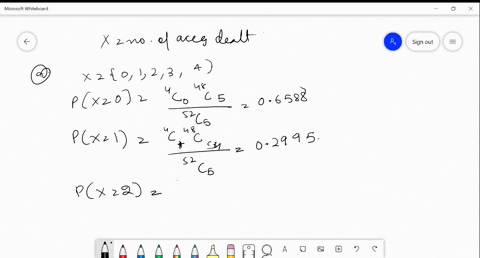 Microsoft Whiteboard
Sign out
X = no. of aces dealt
a) X = {0, 1, 2, 3, 4}
P(X=0) = ⁴C₀ ⁴⁸C₅ / ⁵²C₅ = 0.6588
P(X=1) = ⁴C₁ ⁴⁸C₄ / ⁵²C₅ = 0.2995
P(X=2) =